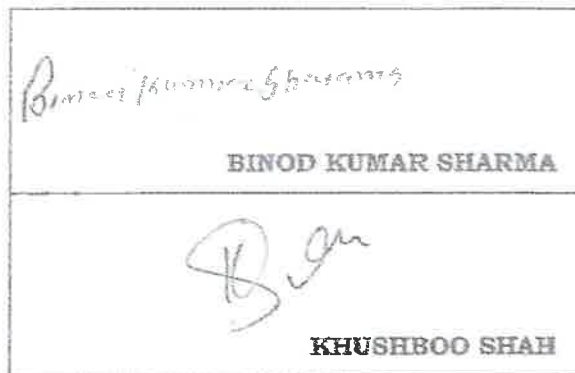 Binod Kumar Sharma
BINOD KUMAR SHARMA
KHUSHBOO SHAH